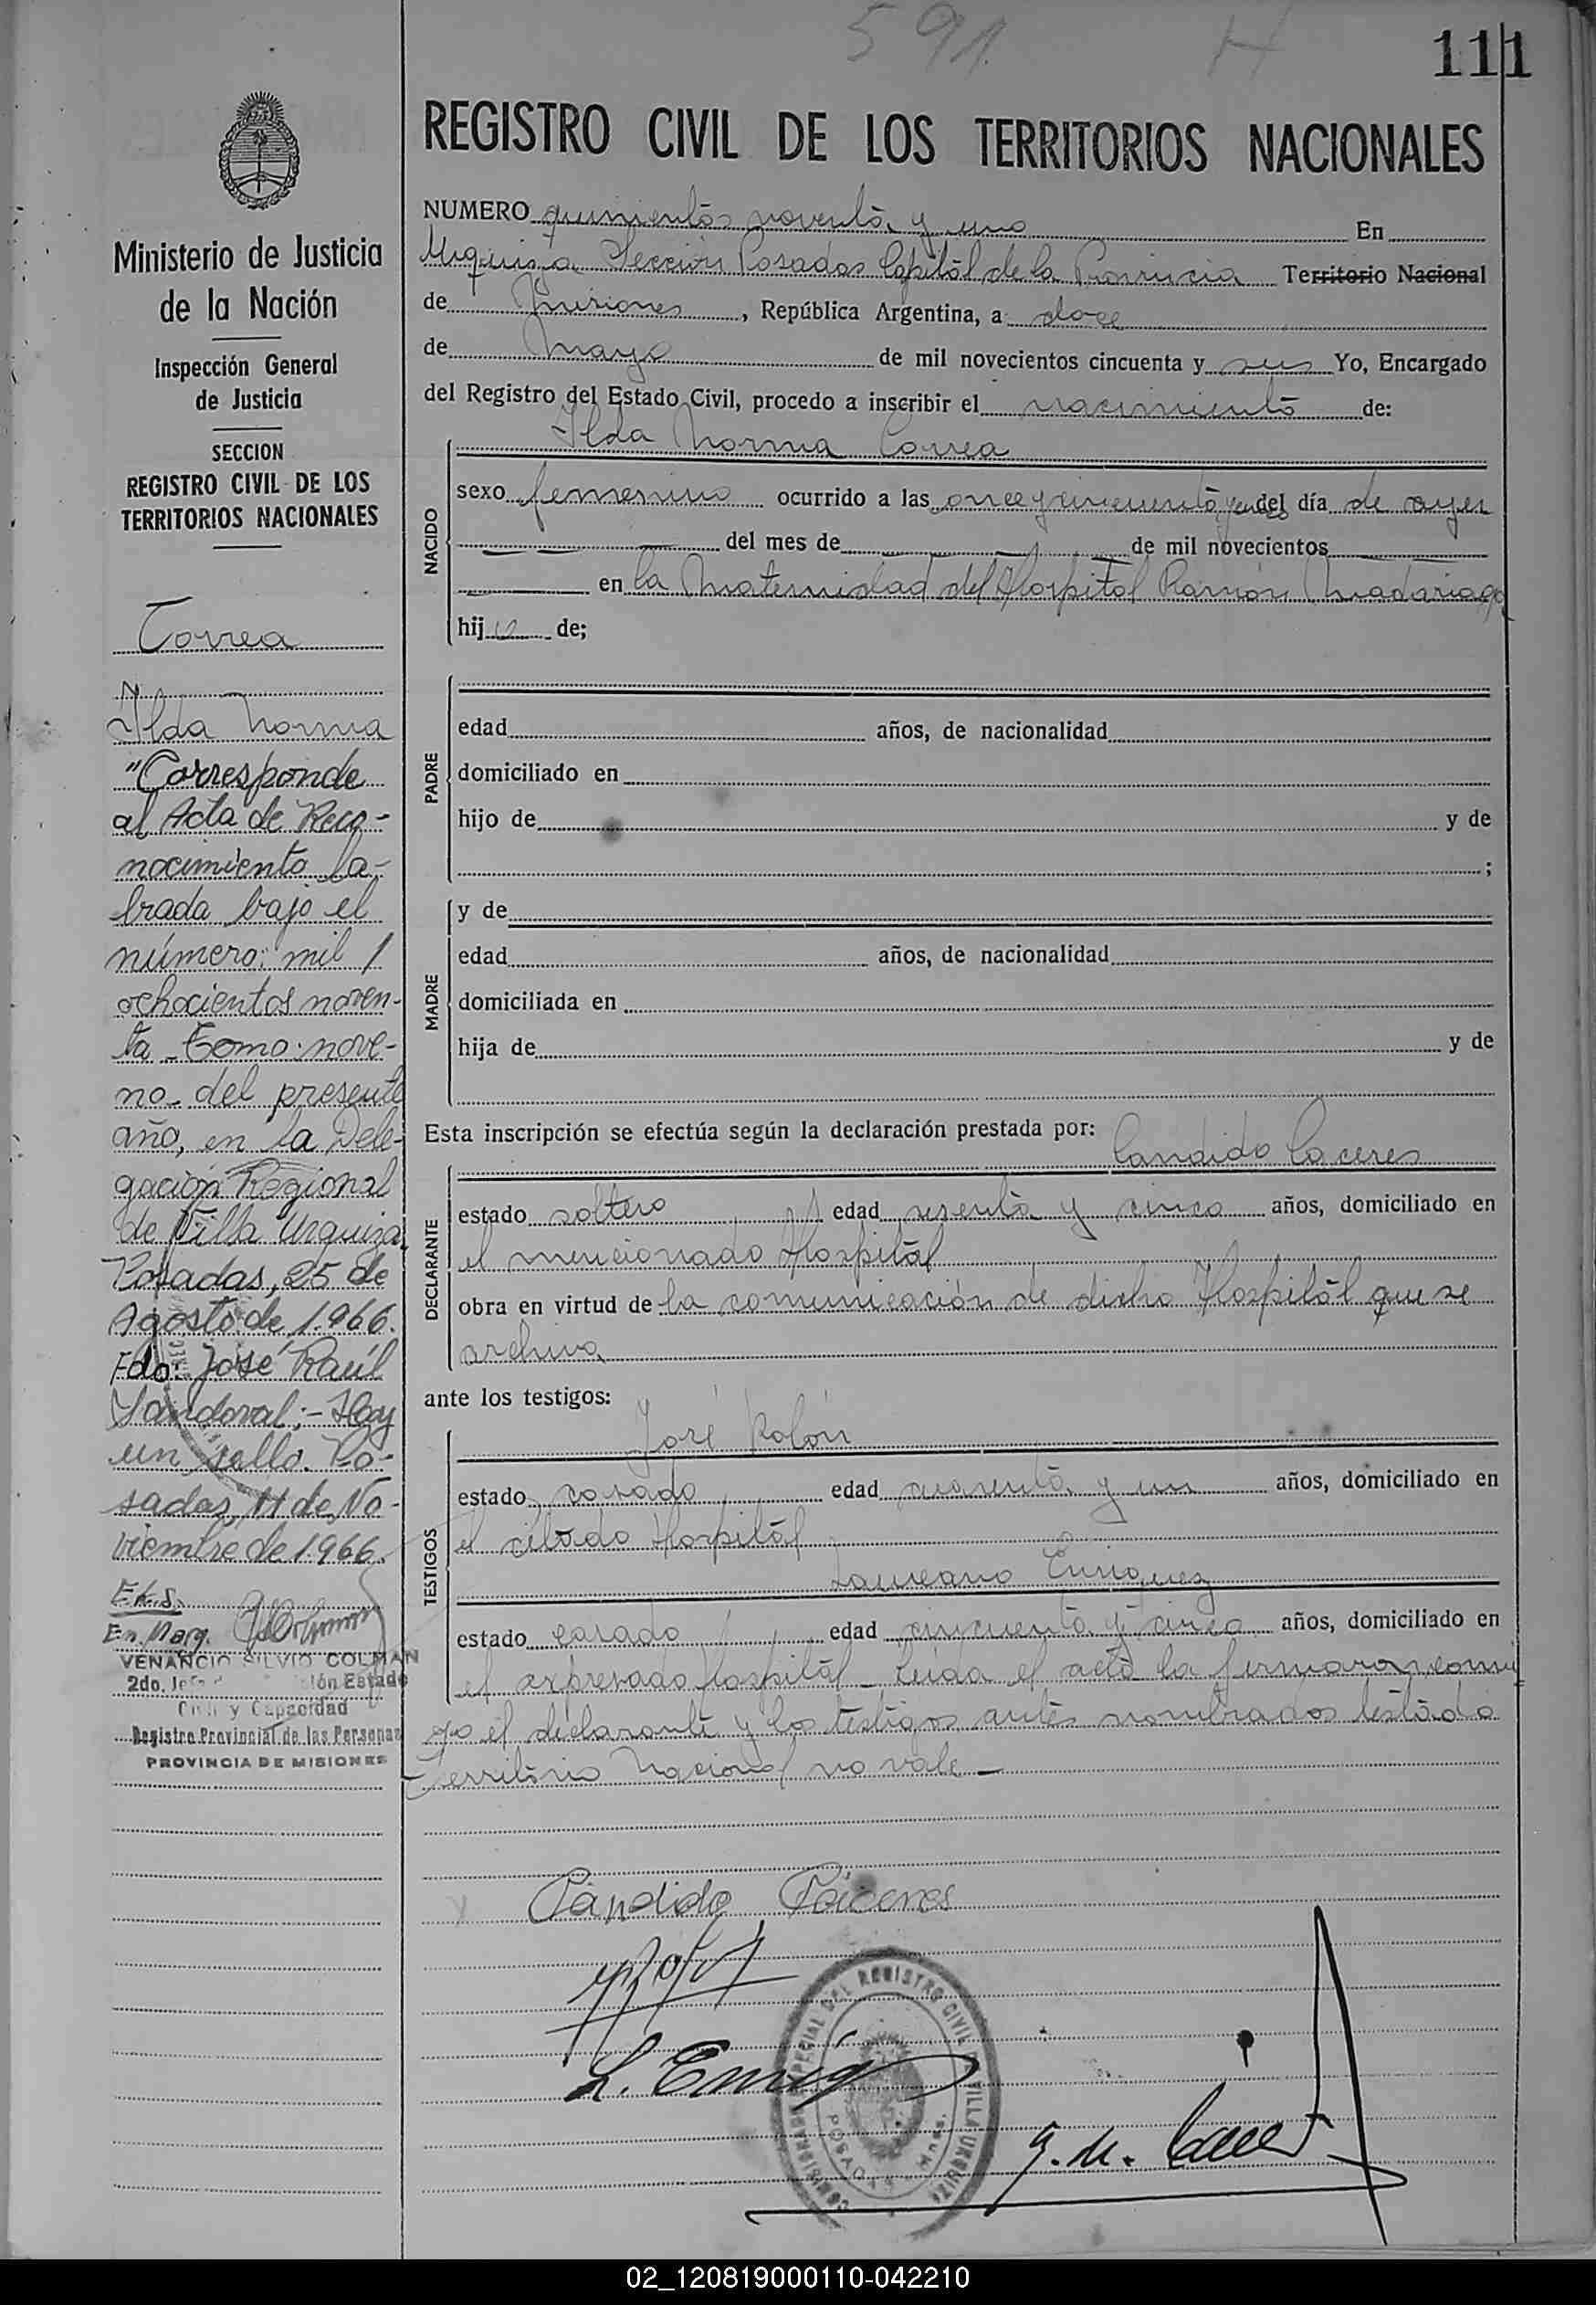 591
111
REGISTRO CIVIL DE LOS TERRITORIOS NACIONALES
NUMERO quinientos noventa y uno En
Urquiza Sección Posadas Capital de la Provincia Territorio Nacional
de Misiones, República Argentina, a doce
de Mayo de mil novecientos cincuenta y seis Yo, Encargado
del Registro del Estado Civil, procedo a inscribir el nacimiento de:
NACIDO
Ilda Norma Correa
sexo femenino ocurrido a las once y cincuenta y del día de ayer
del mes de de mil novecientos
en la Maternidad del Hospital Ramón Madariaga
hija de;
PADRE
edad años, de nacionalidad
domiciliado en
hijo de y de
;
MADRE
y de
edad años, de nacionalidad
domiciliada en
hija de y de
Esta inscripción se efectúa según la declaración prestada por: Candido Caceres
DECLARANTE
estado soltero edad sesenta y cinco años, domiciliado en
el mencionado Hospital
obra en virtud de la comunicación de dicho Hospital que se
archiva
ante los testigos:
TESTIGOS
José Rolón
estado casado edad cuarenta y un años, domiciliado en
el citado Hospital
Laureano Enriquez
estado casado edad cincuenta y cinco años, domiciliado en
el expresado Hospital _ Leida el acta la firmaron conmi
go el declarante y los testigos antes nombrados testado
Territorio Nacional no vale _
Cándido Cáceres
L. Enriq
COMISIONADO ESPECIAL DEL REGISTRO CIVIL DE VILLA URQUIZA
POSADAS Mnes.
Ministerio de Justicia
de la Nación
Inspección General
de Justicia
SECCION
REGISTRO CIVIL DE LOS
TERRITORIOS NACIONALES
Correa
Ilda Norma
"Corresponde
al Acta de Reco-
nocimiento la-
brada bajo el
número: mil /
ochocientos noven-
ta _ Tomo: nove-
no_ del presente
año, en la Dele-
gación Regional
de Villa Urquiza.
Posadas, 25 de
Agosto de 1.966.
Fdo: José Raúl
Sandoval; - Hay
un sello. Po-
sadas, 11 de No-
viembre de 1.966.
En Marg.
VENANCIO SILVIO COLMAN
2do. Jefe ión Estado
Civil y Capacidad
Registro Provincial de las Personas
PROVINCIA DE MISIONES
02_120819000110-042210